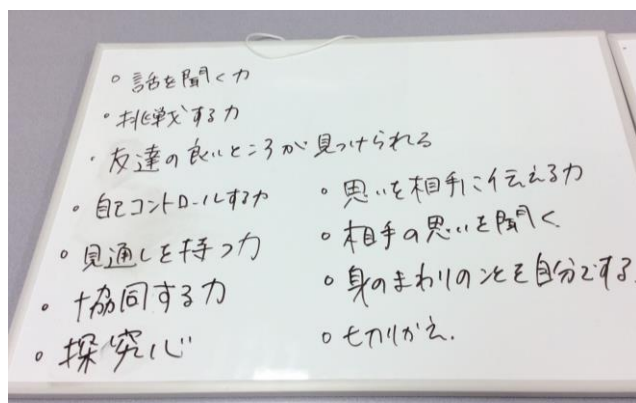 ・話を聞く力
・挑戦する力
・友達の良いところが見つけられる
・自己コントロールする力
・見通しを持つ力
・協同する力
・探究心
・思いを相手に伝える力
・相手の思いを聞く
・身のまわりのことを自分でする
・切りかえ.